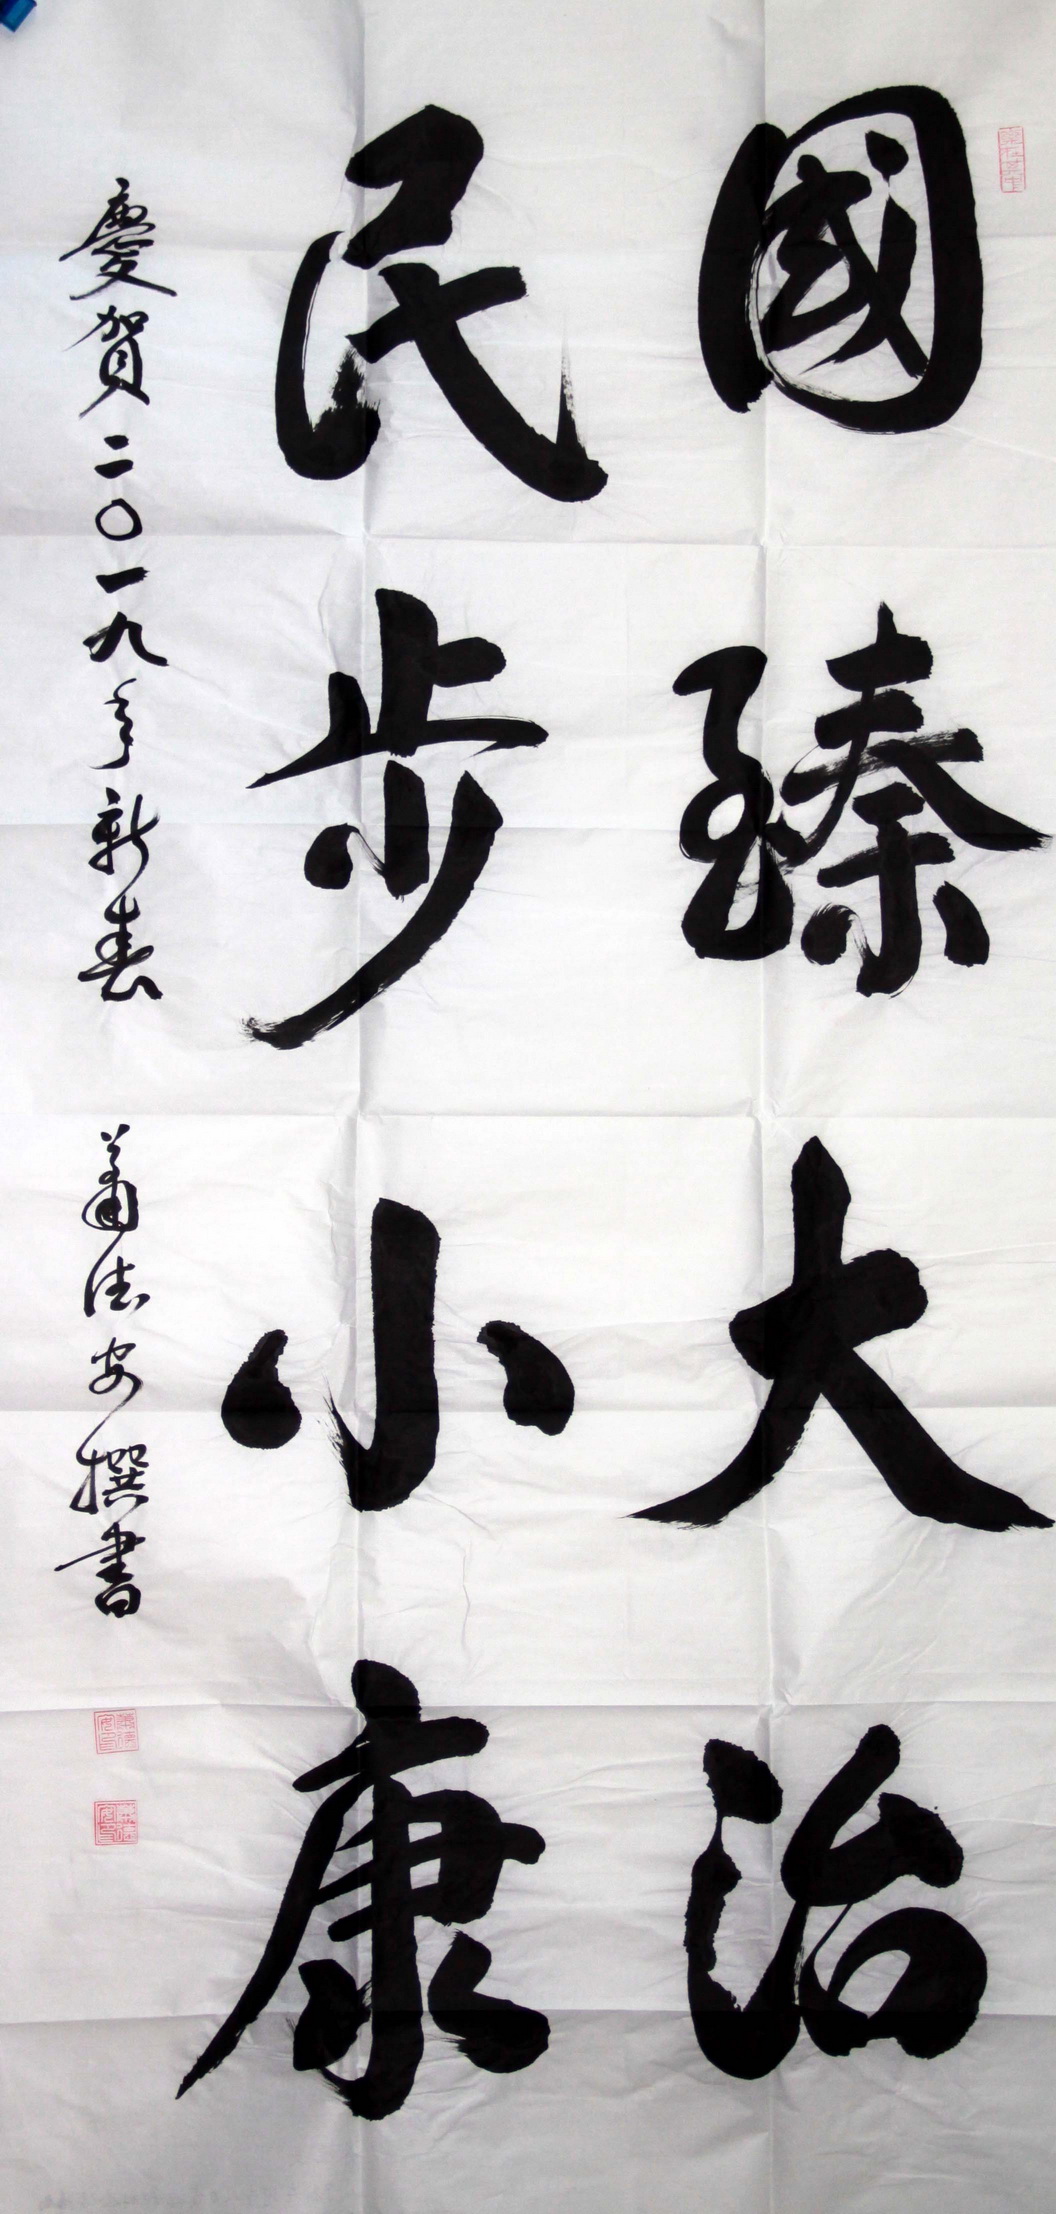 國臻大治
民步小康
慶賀二〇一九年新春 蕭德安撰書